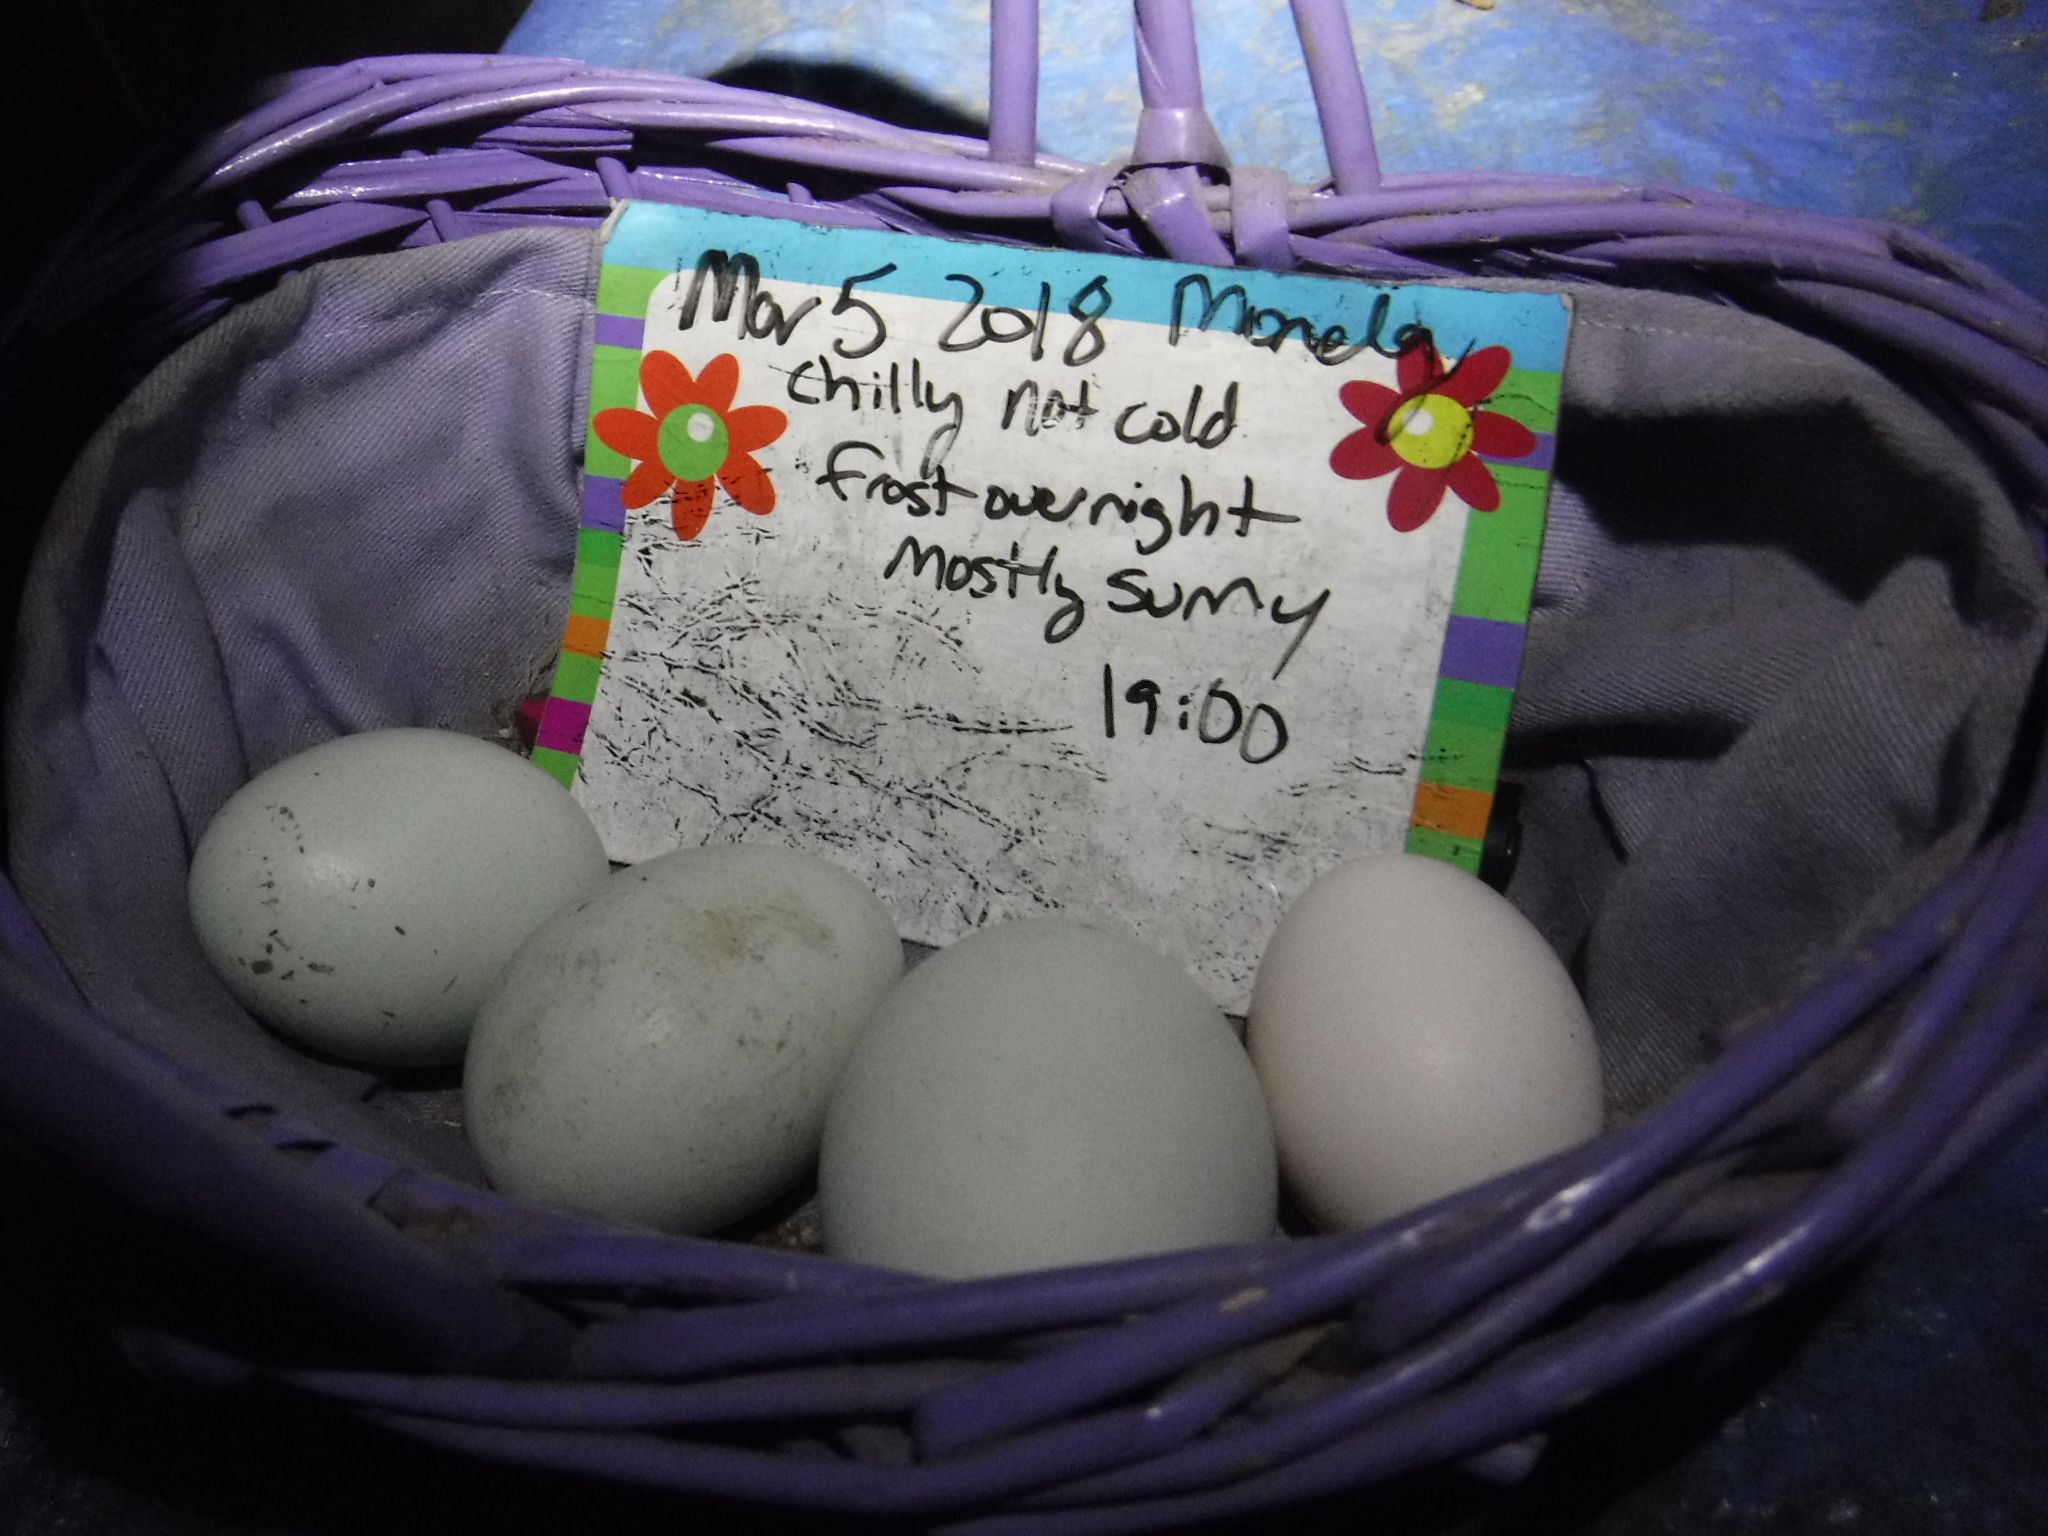 Mar 5 2018 Monday
chilly not cold
frost overnight
mostly sunny
19:00